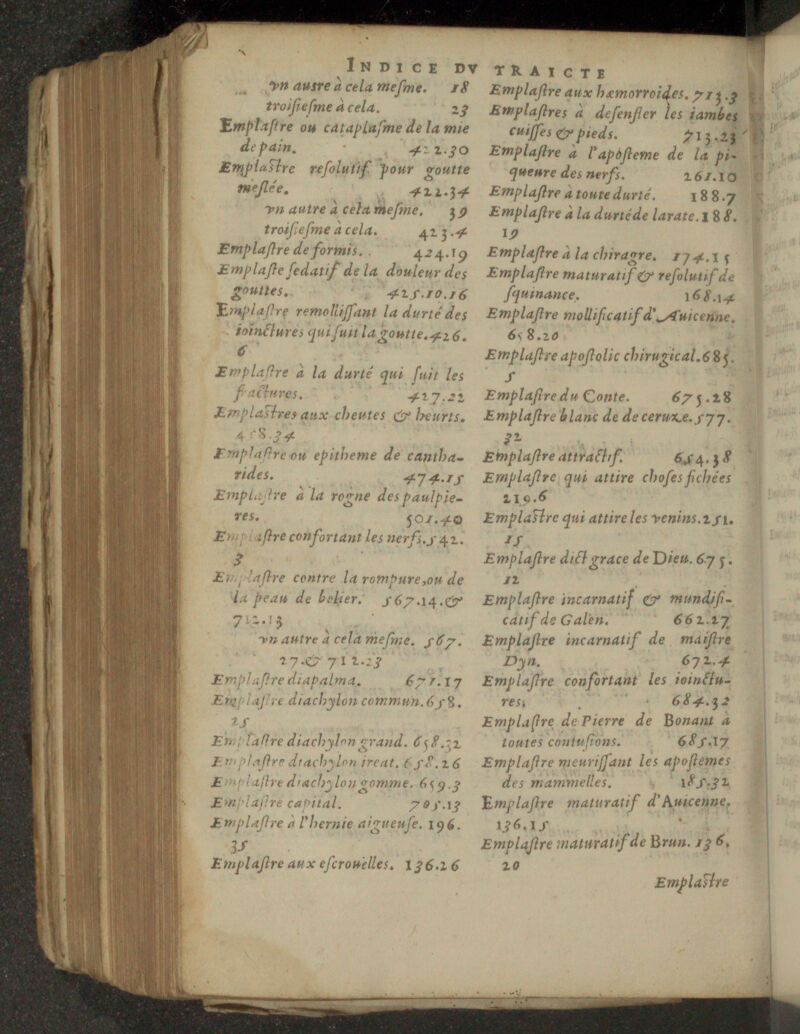 INDICE DV TRAICTE
vn autre à cela mesme. 18
troisiesme à cela. 23
Emplastre ou cataplasme de la mie
de pain. 42 2.30
Emplastre resolutif pour goutte
meslée. 422.34
vn autre à cela mesme. 39
troisiesme à cela. 423.4
Emplastre de formis. 424.19
Emplaste sedatif de la douleur des
gouttes. 425.10.16
Emplastre remollissant la durté des
ioinctures qui suit la goutte. 426.
6
Emplastre à la durté qui suit les
fractures. 427.22
Emplastres aux cheutes & heurts.
458.34
Emplastre ou epitheme de cantha-
rides. 474.15
Emplastre à la rogne des paulpie-
res. 501.40
Emplastre confortant les nerfs. 542.
3
Emplastre contre la rompure, ou de
la peau de belier. 567.14.&
712.13
vn autre à cela mesme. 567.
27.& 712.23
Emplastre diapalma. 671.17
Emplastre diachylon commun. 658.
25
Emplastre diachylon grand. 658.32
Emplastre diachylon ireat. 658.26
Emplastre diachylon gomme. 659.3
Emplastre capital. 705.13
Emplastre à l'hernie aigueuse. 196.
35
Emplastre aux escrouelles. 136.26
Emplastre aux hæmorroides. 713.3
Emplastres à desenfler les iambes
cuisses & pieds. 713.23
Emplastre à l'apósteme de la pi-
queure des nerfs. 261.10
Emplastre à toute durté. 188.7
Emplastre à la durté de la rate. 188.
19
Emplastre à la chiragre. 174.15
Emplastre maturatif & resolutif de
squinance. 168.14
Emplastre mollificatif d'Auicenne.
658.20
Emplastre apostolic chirugical. 685.
5
Emplastre du Conte. 675.28
Emplastre blanc de de ceruze. 577.
32
Emplastre attractif. 654.38
Emplastre qui attire choses fichées
210.6
Emplastre qui attire les venins. 251.
15
Emplastre dict grace de Dieu. 675.
12
Emplastre incarnatif & mundifi-
catif de Galen. 662.27
Emplastre incarnatif de maistre
Dyn. 672.4
Emplastre confortant les ioinctu-
res. 684.32
Emplastre de Pierre de Bonant à
toutes contusions. 685.17
Emplastre meurissant les apostemes
des mammelles. 185.32
Emplastre maturatif d'Auicenne.
136.15
Emplastre maturatif de Brun. 136.
20
Emplastre